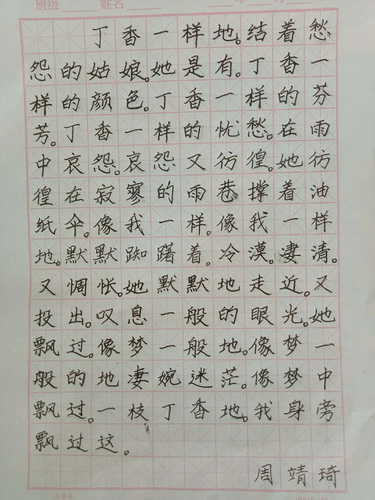 班级 姓名
丁香一样地。结着愁
怨的姑娘。她是有。丁香一
样的颜色。丁香一样的芬
芳。丁香一样的忧愁。在雨
中哀怨。哀怨又彷徨。她彷
徨在寂寥的雨巷。撑着油
纸伞。像我一样。像我一样
地。默默踟躇着。冷漠。凄清。
又惆怅。她默默地走近。又
投出。叹息一般的眼光。她
飘过。像梦一般地。像梦一
般的地凄婉迷茫。像梦中
飘过。一枝丁香地。我身旁
飘过这。
周靖琦